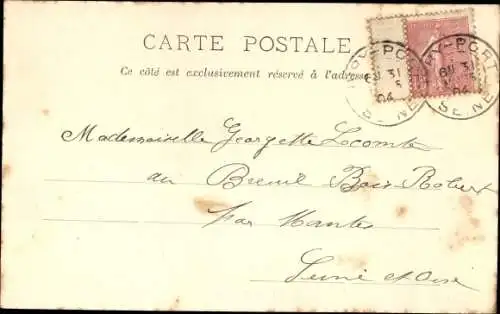 CARTE POSTALE
Ce côté est exclusivement réservé à l'adresse
IVRY-PORT
6E 31
5
04
SEINE
Mademoiselle Georgette Lecomte
au Breuil Bois-Robert
par Mantes
Seine et Oise